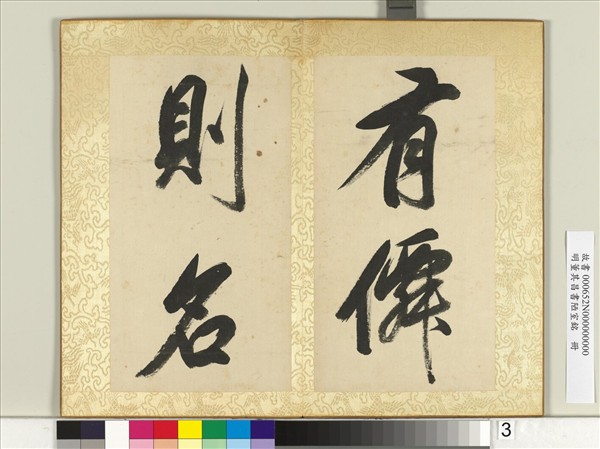 有僊
則名
故書000652N000000000
明董其昌書陋室銘 冊
3